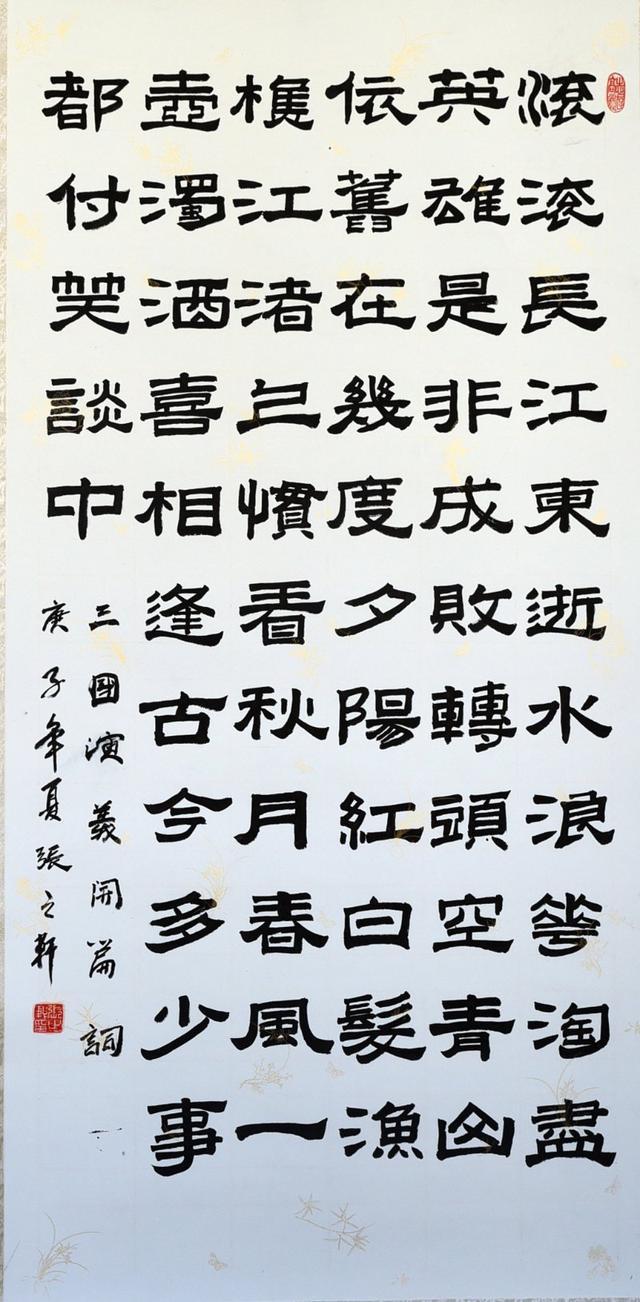 滚滚長江東逝水浪華淘盡
英雄是非成敗轉頭空青山
依舊在幾度夕陽紅白髮漁
樵江渚上慣看秋月春風一
壺濁酒喜相逢古今多少事
都付笑談中
三國演義開篇詞
庚子年夏張之軒